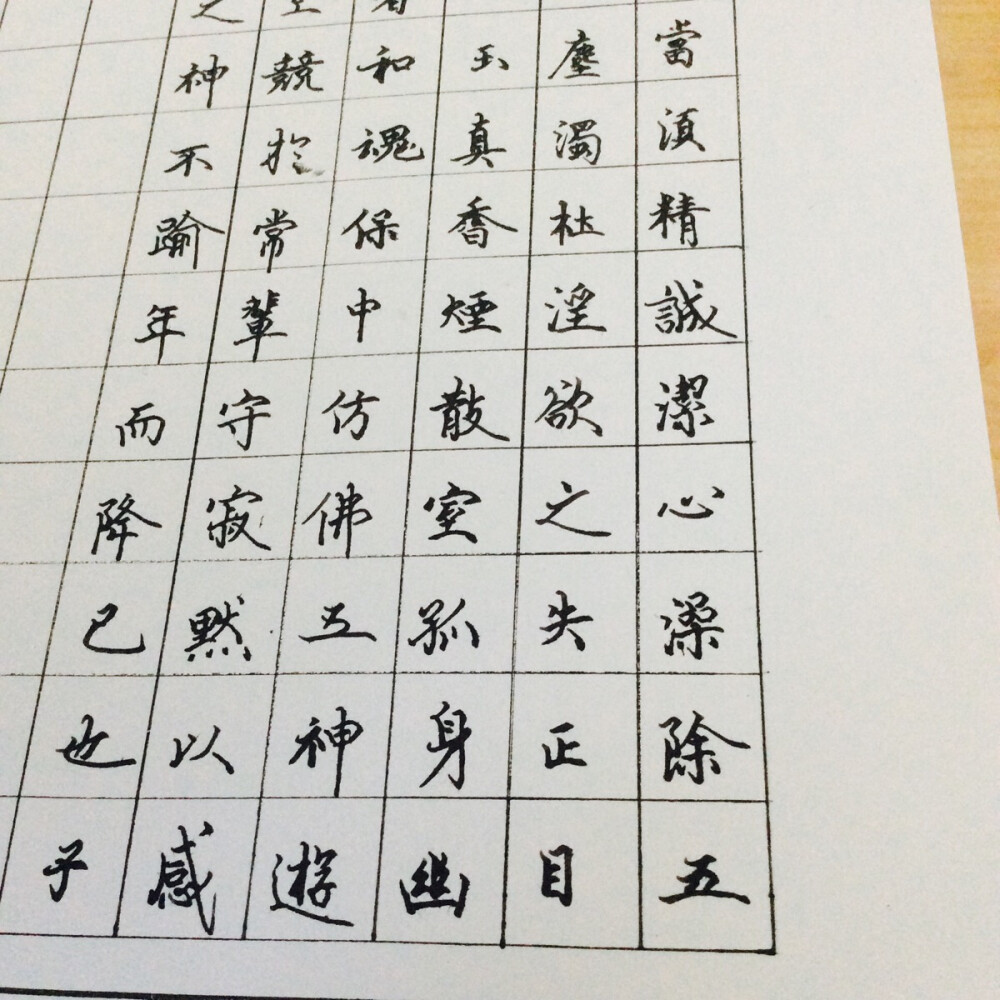 當須精誠潔心澡除五
塵濁杜淫欲之失正目
玉真香煙散室孤身幽
和魂保中仿佛五神遊
競於常輩守寂默以感
之神不踰年而降已也子